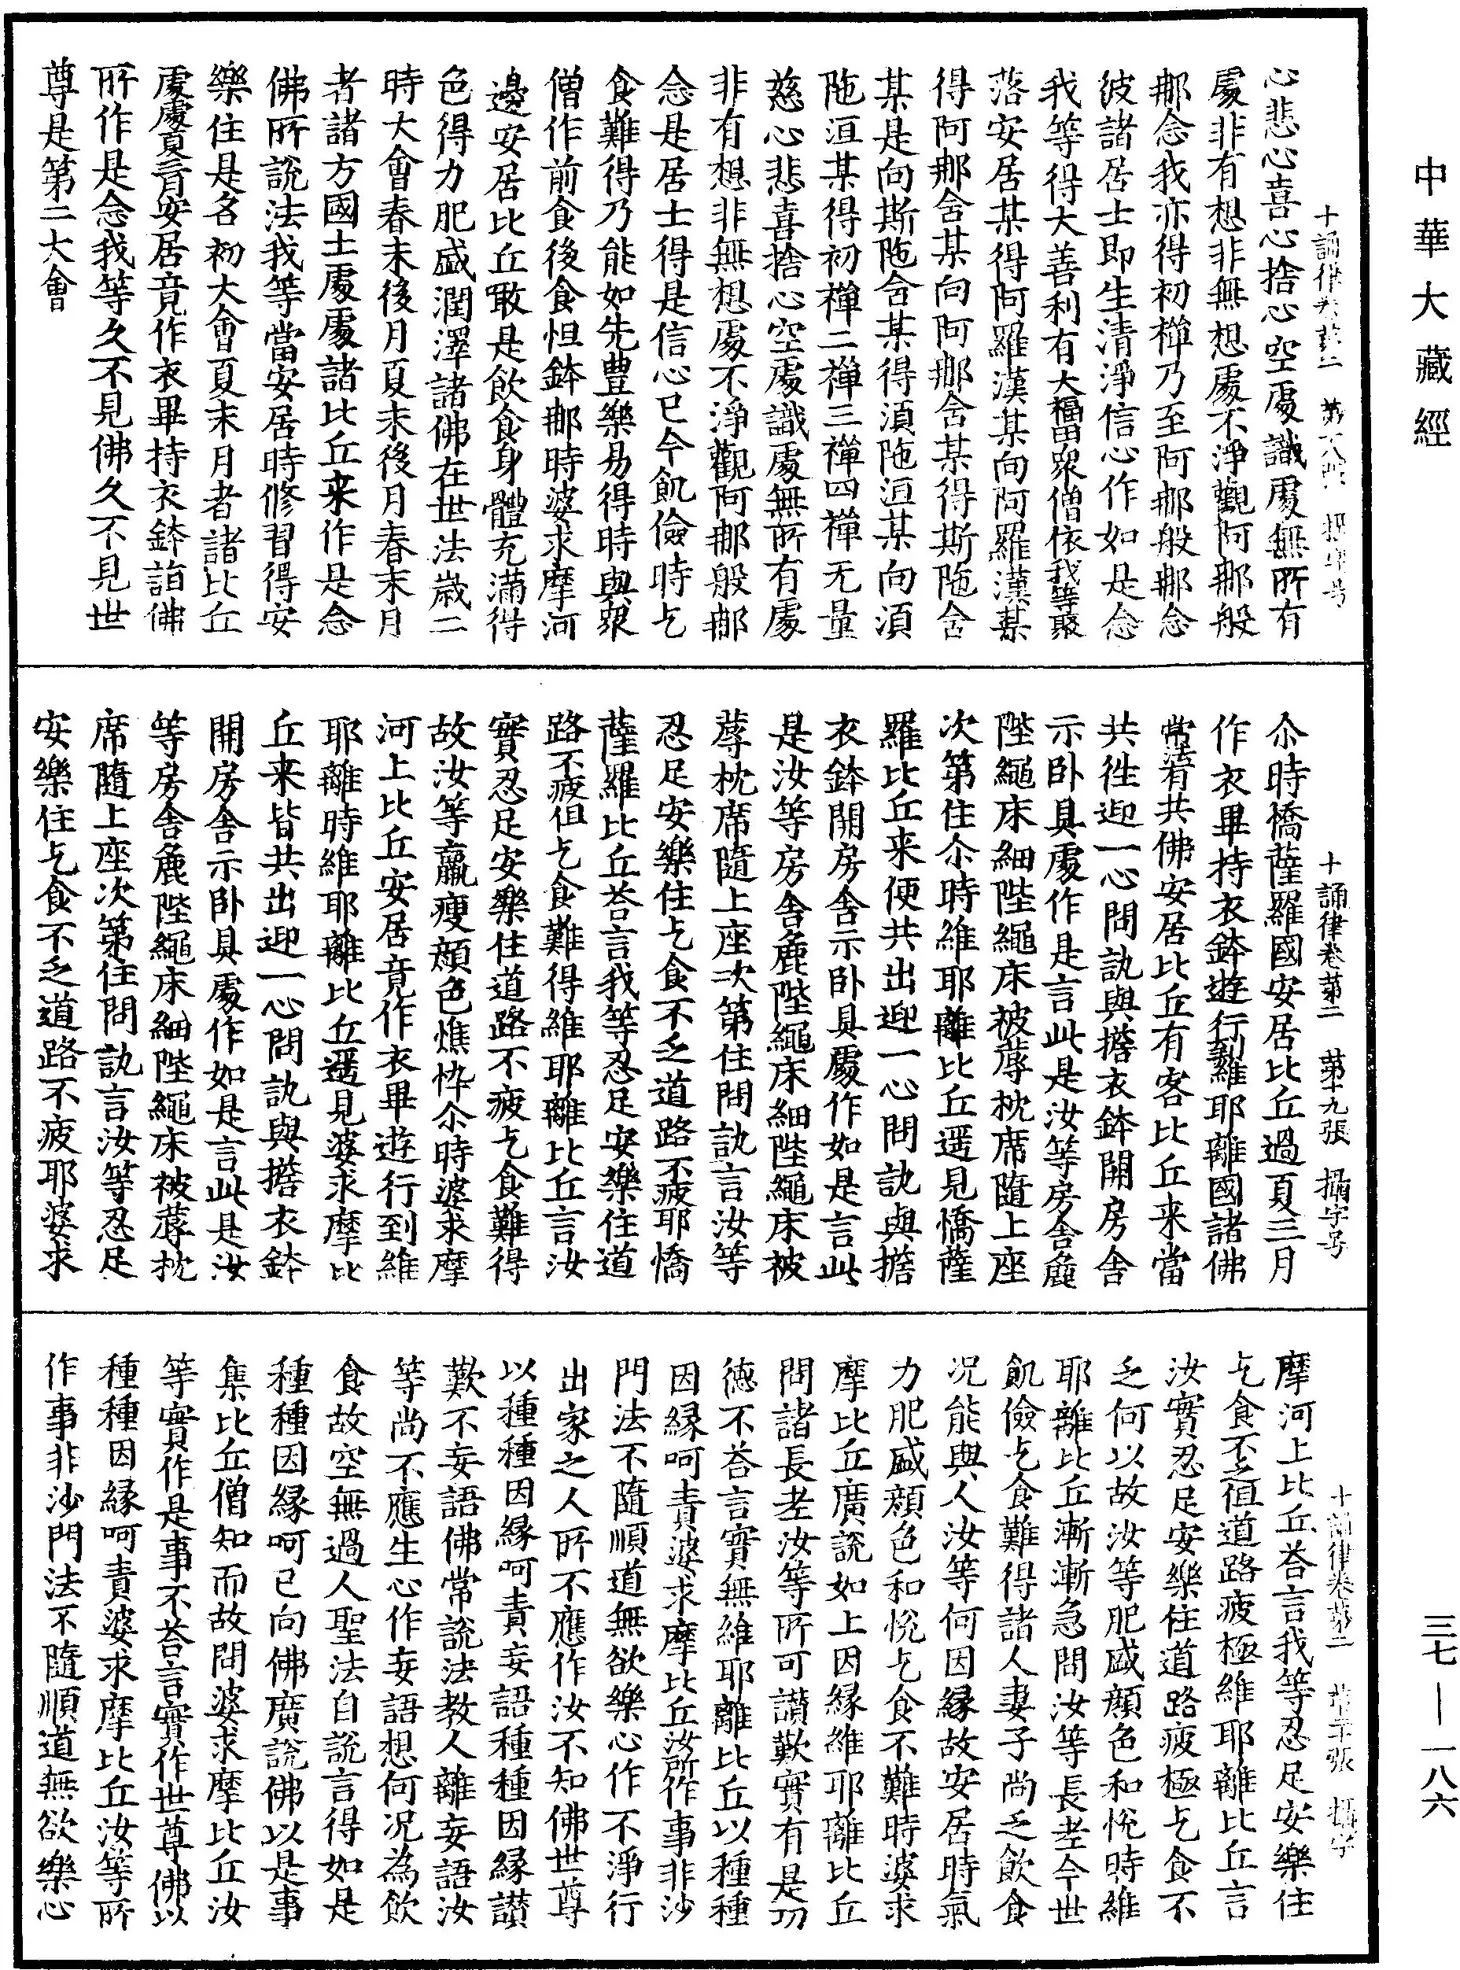 中華大藏經
十誦律卷第二　第十八張　攝字号
心悲心喜心捨心空處識處無所有
處非有想非無想處不淨觀阿那般
那念我亦得初禪乃至阿那般那念
彼諸居士即生清淨信心作如是念
我等得大善利有大福田眾僧依我等聚
落安居某得阿羅漢某向阿羅漢某
得阿那含某向阿那含某得斯陁含
某是向斯陁含某得湏陁洹某向湏
陁洹某得初禪二禪三禪四禪无量
慈心悲喜捨心空處識處無所有處
非有想非無想處不淨觀阿那般那
念是居士得是信心已今飢儉時乞
食難得乃能如先豊樂易得時與眾
僧作前食後食怛鉢那時婆求摩河
邊安居比丘噉是飲食身體充滿得
色得力肥盛潤澤諸佛在世法歲二
時大會春末後月夏末後月春末月
者諸方國土處處諸比丘来作是念
佛所說法我等當安居時修習得安
樂住是名初大會夏末月者諸比丘
處處夏三月安居竟作衣畢持衣鉢詣佛
所作是念我等久不見佛久不見世
尊是第二大會
十誦律卷第二　第十九張　攝字号
尒時憍薩羅國安居比丘過夏三月
作衣畢持衣鉢遊行到維耶離國諸佛
常法有共佛安居比丘有客比丘来當
共徃迎一心問訊與擔衣鉢開房舍
示卧具處作是言此是汝等房舍麁
陛繩床細陛繩床被蓐枕席隨上座
次第住尒時維耶離比丘遥見憍薩
羅比丘来便共出迎一心問訊與擔
衣鉢開房舍示卧具處作如是言此
是汝等房舍麁陛繩床細陛繩床被
蓐枕席隨上座次第住問訊言汝等
忍足安樂住乞食不乏道路不疲耶憍
薩羅比丘荅言我等忍足安樂住道
路不疲但乞食難得維耶離比丘言汝
實忍足安樂住道路不疲乞食難得
故汝等羸瘦顏色燋悴尒時婆求摩
河上比丘安居竟作衣畢遊行到維
耶離時維耶離比丘遥見婆求摩比
丘来皆共出迎一心問訊與擔衣鉢
開房舍示卧具處作如是言此是汝
等房舍麁陛繩床細陛繩床被蓐枕
席隨上座次第住問訊言汝等忍足
安樂住乞食不乏道路不疲耶婆求
十誦律卷第二　第二十張　攝字
摩河上比丘荅言我等忍足安樂住
乞食不乏但道路疲極維耶離比丘言
汝實忍足安樂住道路疲極乞食不
乏何以故汝等肥盛顏色和悅時維
耶離比丘漸漸急問汝等長老今世
飢儉乞食難得諸人妻子尚乏飲食
况能與人汝等何因縁故安居時氣
力肥盛顏色和悅乞食不難時婆求
摩比丘廣說如上因縁維耶離比丘
問諸長老汝等所可讃歎實有是功
德不荅言實無維耶離比丘以種種
因縁呵責婆求摩比丘汝所作事非沙
門法不隨順道無欲樂心作不淨行
出家之人所不應作汝不知佛世尊
以種種因縁呵責妄語種種因縁讃
歎不妄語佛常說法教人離妄語汝
等尚不應生心作妄語想何况為飲
食故空無過人聖法自說言得如是
種種因縁呵已向佛廣說佛以是事
集比丘僧知而故問婆求摩比丘汝
等實作是事不荅言實作世尊佛以
種種因縁呵責婆求摩比丘汝等所
作事非沙門法不隨順道無欲樂心
三七—一八六